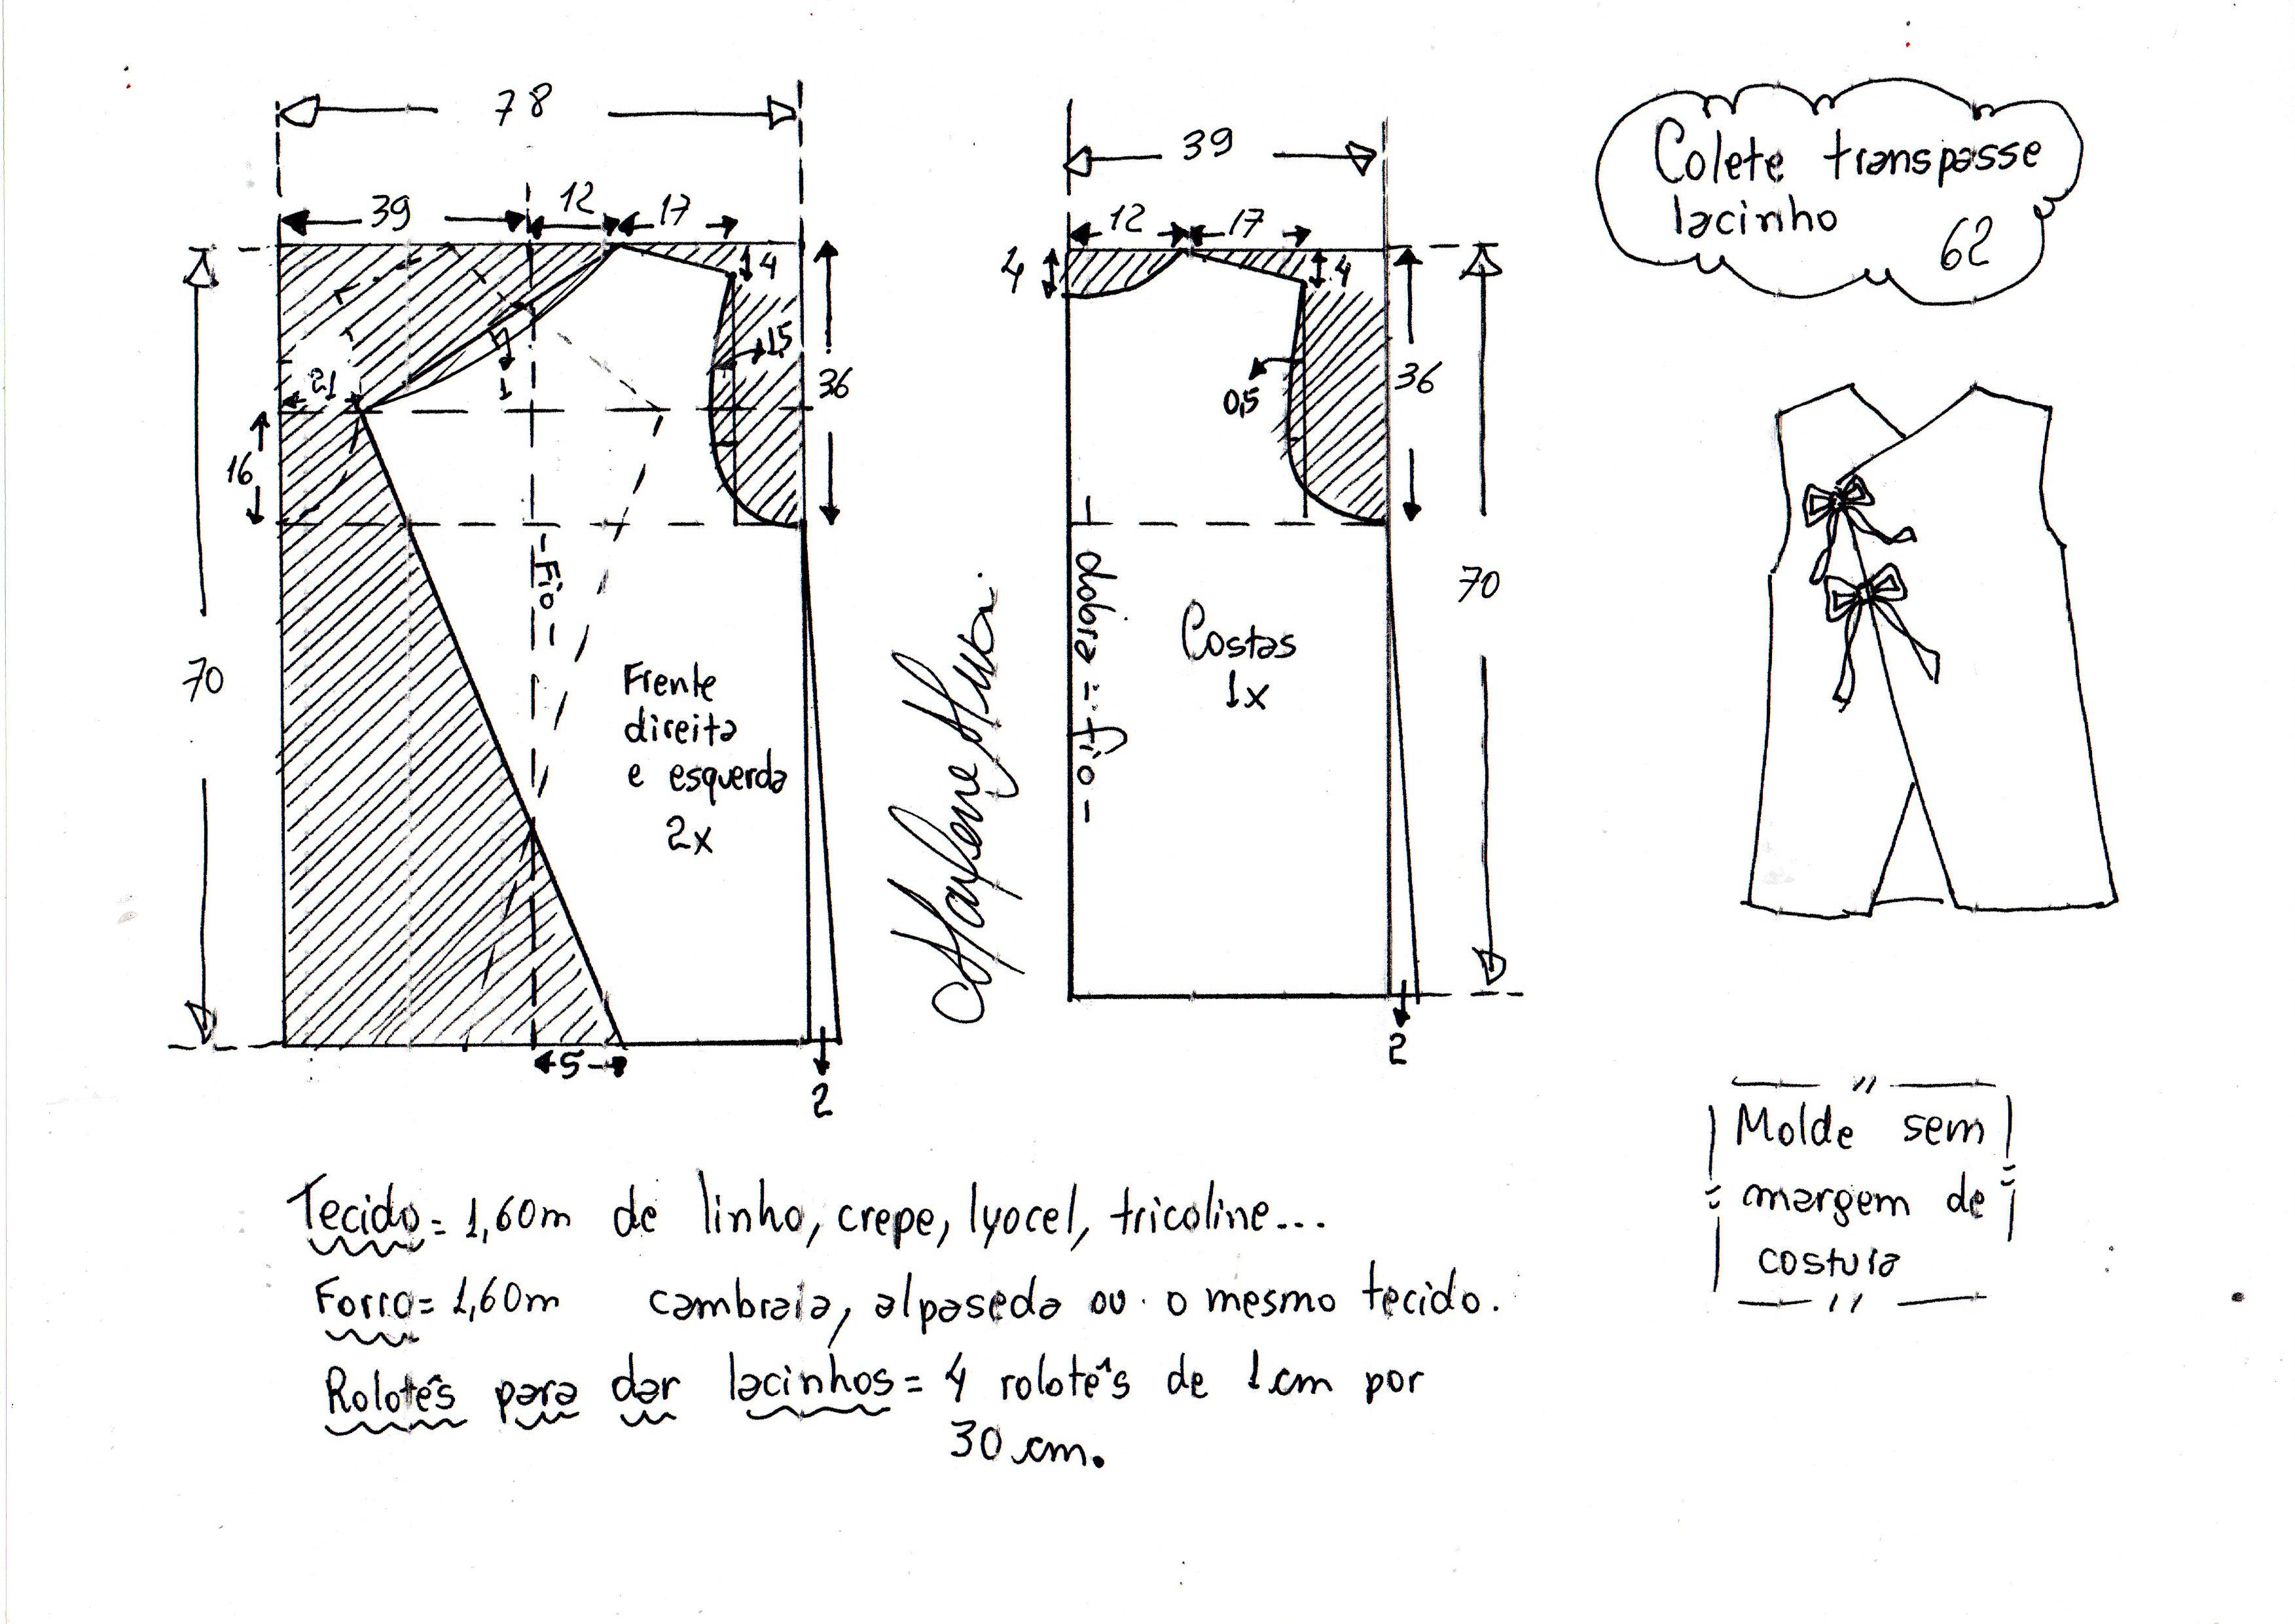 78
39
12
17
4
1,5
36
21
1
16
70
- Fio -
Frente
direita
e esquerda
2x
5
2
39
12
17
4
4
0,5
36
70
dobra = fio -
Costas
1x
2
Colete transpasse
lacinho 62
Molde sem
margem de
costura
Tecido = 1,60m de linho, crepe, lyocel, tricoline...
Forro = 1,60m cambraia, alpaseda ou o mesmo tecido.
Rolotês para dar lacinhos = 4 rolotês de 1cm por
30 cm.